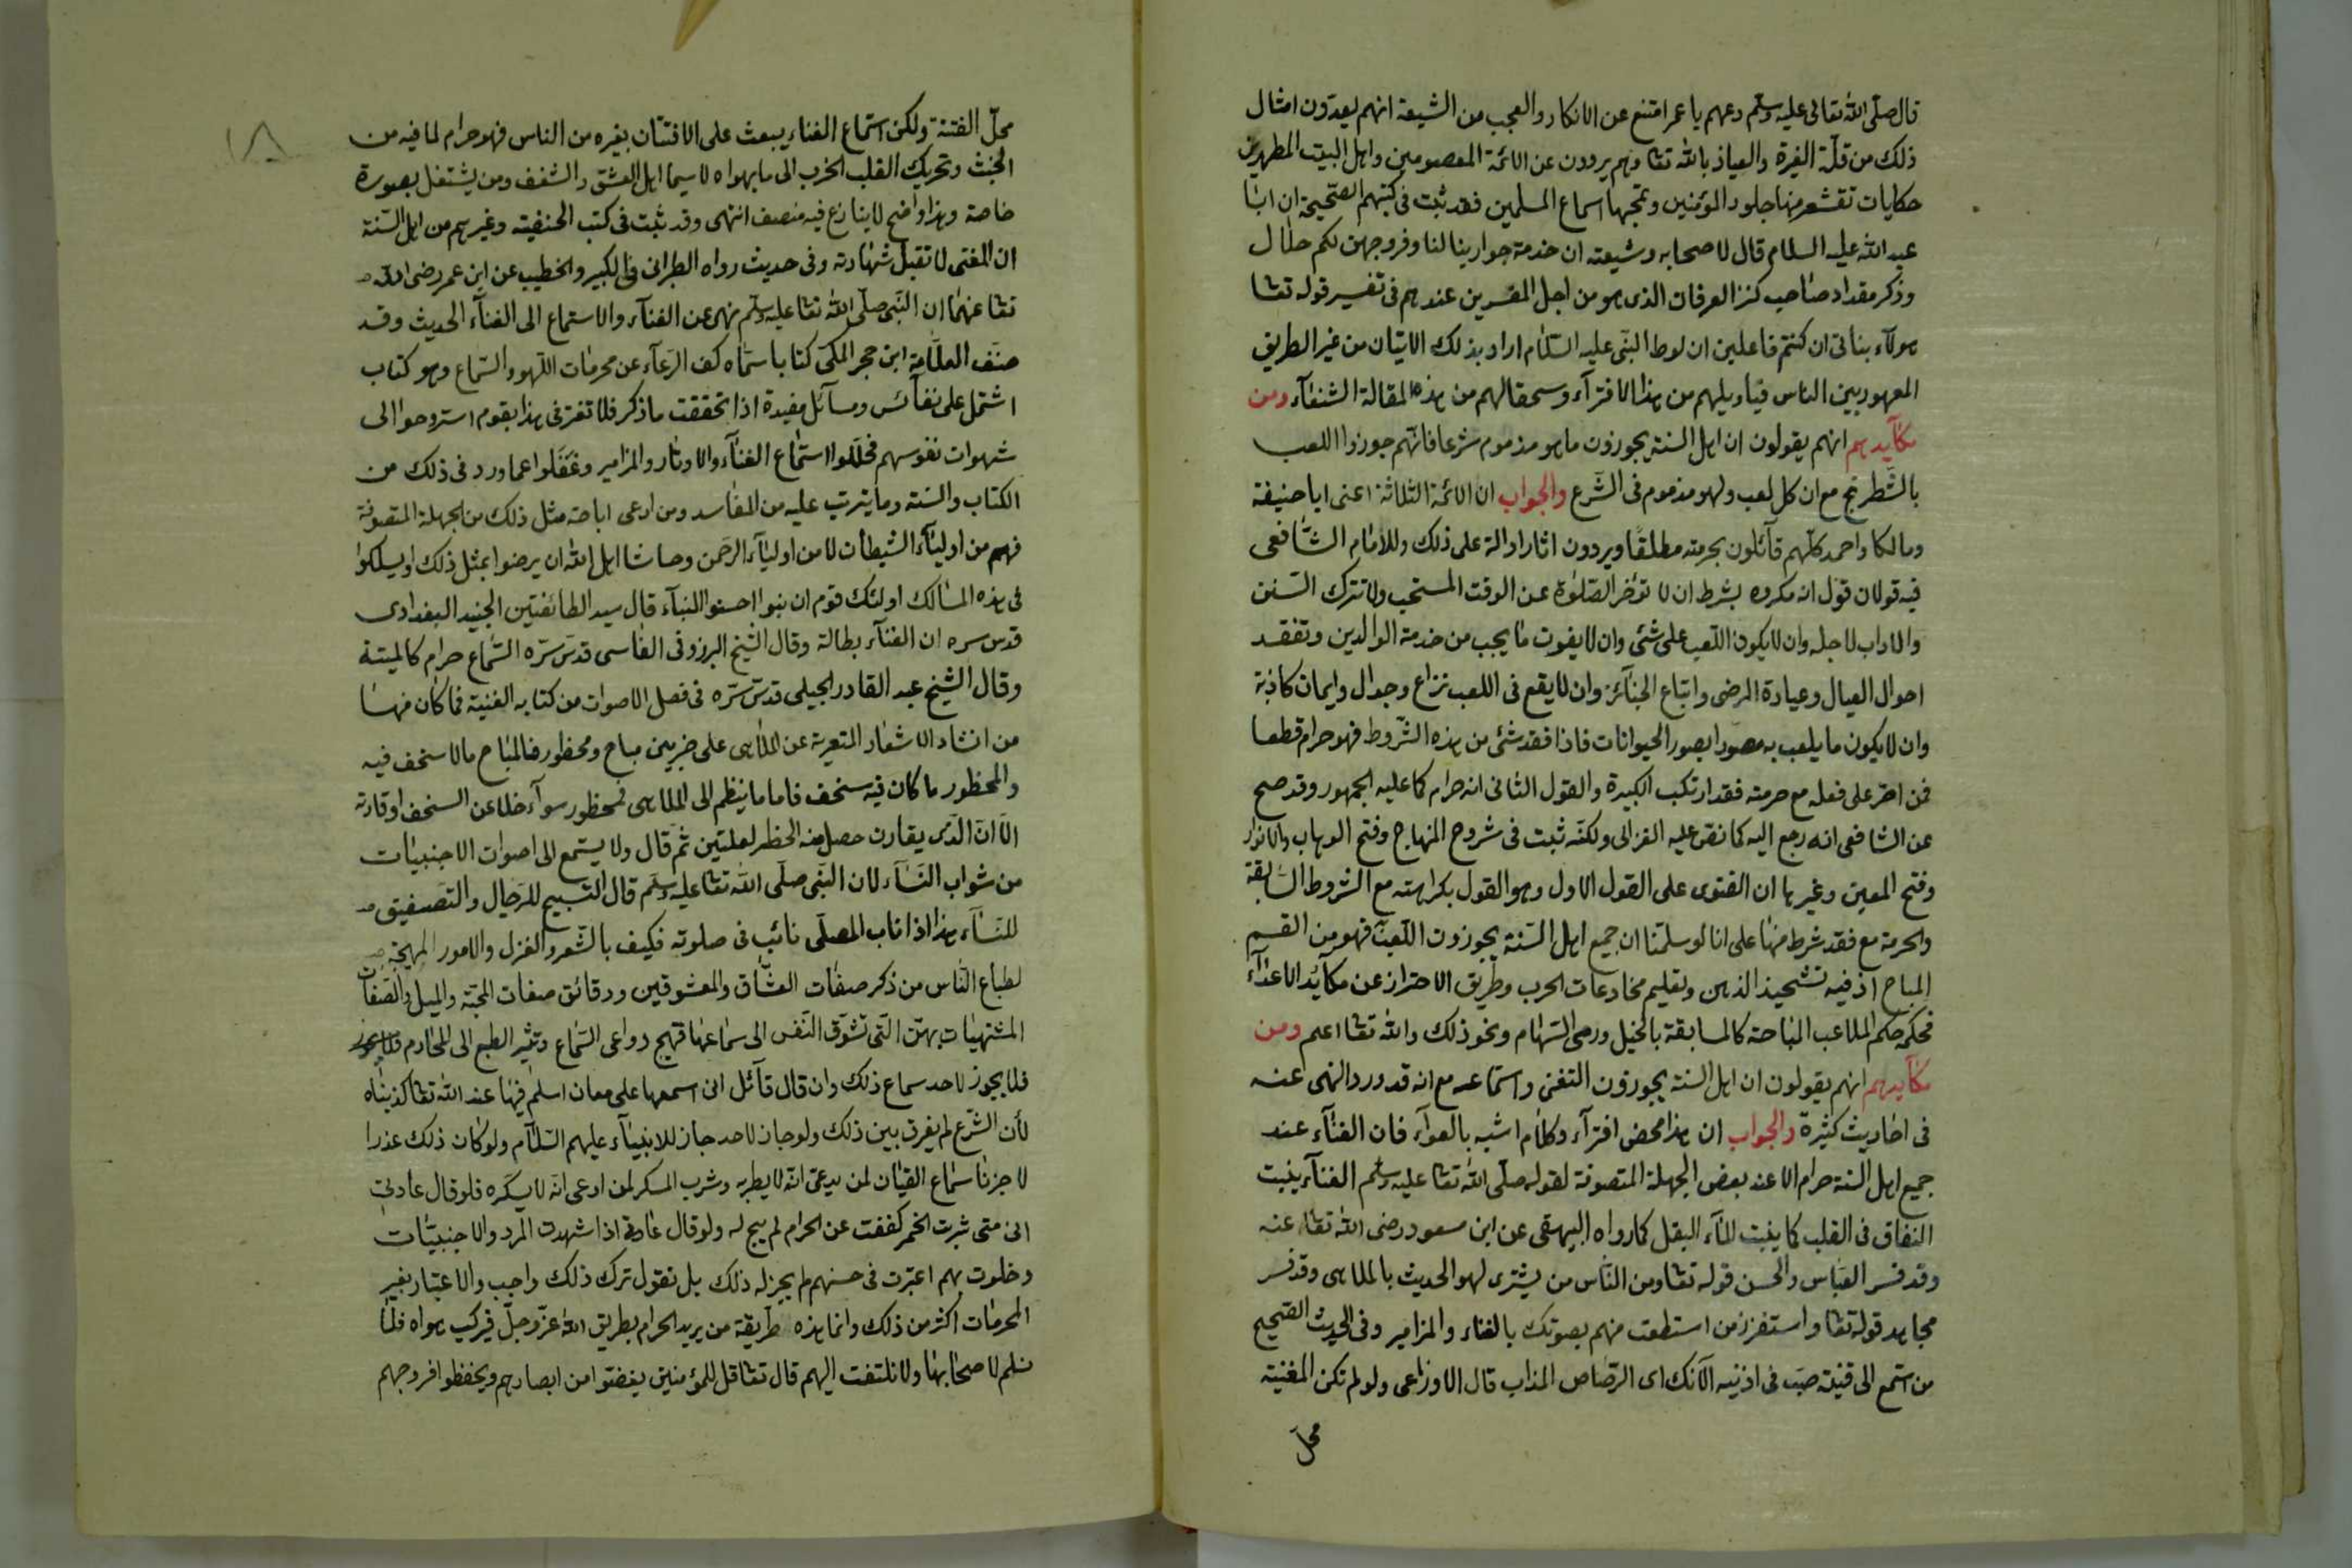 قال صلى الله تعالى عليه وسلم دعهم يا عمر امتنع عن الانكار والعجب من الشيعة انهم يعدّون امثال
ذلك من قلّة الغيرة والعياذ بالله تعا وهم يروون عن الائمة المعصومين واهل البيت المطهرين
حكايات تقشعر منها جلود المؤمنين وتمجها اسماع المسلمين فقد ثبت فى كتبهم الصّحيحة ان ابا
عبد الله عليه السلام قال لاصحابه وشيعته ان خدمة جوارينا لنا وفروجهن لكم حلال
وذكر مقداد صاحب كنز العرفان الذى هو من اجل المفسرين عندهم فى تفسير قوله تعا
هولآء بناتى ان كنتم فاعلين ان لوط النبى عليه السّلام اراد بذلك الاتيان من غير الطريق
المعهود بين الناس فياويلهم من هذا الافترآء وسحقا لهم من هذه المقالة الشنعآء ومن
مكآيدهم انهم يقولون ان اهل السنة يجوزون ما هو مذموم شرعا فانّهم جوزوا اللعب
بالشّطرنج مع ان كل لعب ولهو مذموم فى الشّرع والجواب ان الائمة الثلاثة اعنى ابا حنيفة
ومالكا واحمد كلّهم قآئلون بحرمته مطلقًا ويروون اثارا دالة على ذلك وللأمام الشّافعى
فيه قولان قول انه مكروه بشرط ان لا تؤخر الصّلوة عن الوقت المستحب ولا تترك السّنن
والاداب لاجله وان لا يكون اللّعب على شئ وان لا يفوت ما يجب من خدمة الوالدين وتفقد
احوال العيال وعيادة المرضى واتباع الجنآئز وان لا يقع فى اللعب نزاع وجدال وايمان كاذبة
وان لا يكون ما يلعب به مصوّرا بصور الحيوانات فاذا فقد شئ من هذه الشّروط فهو حرام قطعا
فمن اصر على فعله مع حرمته فقد ارتكب الكبيرة والقول الثانى انه حرام كما عليه الجمهور وقد صح
عن الشافعى انه رجع اليه كما نص عليه الغزالى ولكنّه ثبت فى شروح المنهاج وفتح الوهاب والانوار
وفتح المعين وغيرها ان الفتوى على القول الاول وهو القول بكراهته مع الشروط السّابقة
والحرمة مع فقد شرط منها على انا لو سلّمنا ان جميع اهل السّنة يجوزون اللّعب فهو من القسم
المباح اذ فيه تشحيذ الذهن وتعليم مخادعات الحرب وطريق الاحتراز عن مكآيد الاعدآء
فحكمه حكم الملاعب المباحة كالمسابقة بالخيل ورمى السّهام ونحو ذلك والله تعا اعلم ومن
مكآيدهم انهم يقولون ان اهل السنة يجوزون التغنى واستماعه مع انه قد ورد النهى عنه
فى احاديث كثيرة والجواب ان هذا محض افترآء وكلام اشبه بالعوآء فان الغنآء عند
جميع اهل السنة حرام الا عند بعض الجهلة المتصوفة لقوله صلّى الله تعا عليه وسلم الغنآء ينبت
النفاق فى القلب كما ينبت المآء البقل كما رواه البيهقى عن ابن مسعود رضى الله تعا عنه
وقد فسر العبّاس والحسن قوله تعا ومن النّاس من يشترى لهو الحديث بالملاهى وقد فسر
مجاهد قوله تعا واستفزز من استطعت منهم بصوتك بالغناء والمزامير وفى الحديث الصّحيح
من استمع الى قينة صب فى اذنيه الآنك اى الرّصاص المذاب قال الاوزاعى ولو لم تكن المغنية
محل
١٨
محلّ الفتنة ولكن استماع الغناء يبعث على الافتتان بغيره من الناس فهو حرام لما فيه من
الخبث وتحريك القلب الخرب الى ما يهواه لا سيما اهل العشق والشغف ومن يشتغل بصورة
خاصة وهذا واضح لا ينازع فيه منصف انتهى وقد ثبت فى كتب الحنفية وغيرهم من اهل السّنة
ان المغنى لا تقبل شهادته وفى حديث رواه الطبرانى فى الكبير والخطيب عن ابن عمر رضى الله
تعا عنهما ان النّبى صلّى الله تعا عليه وسلّم نهى عن الغنآء والاستماع الى الغنآء الحديث وقد
صنّف العلّامة ابن حجر المكى كتابا سمّاه كف الرّعآء عن محرمات اللّهو والسّماع وهو كتاب
اشتمل على نفآئس ومسآئل مفيدة اذا تحققت ما ذكر فلا تغتر فى هذا بقوم استروحوا الى
شهوات نفوسهم فحلّلوا استماع الغنآء والاوتار والمزامير وغفلوا عما ورد فى ذلك من
الكتاب والسّنة وما يترتب عليه من المفاسد ومن ادعى اباحته مثل ذلك من الجهلة المتصوفة
فهم من اوليآء الشيطان لا من اوليآء الرّحمن وحاشا اهل الله ان يرضوا بمثل ذلك او يسلكوا
فى هذه المسالك اولئك قوم ان بنوا احسنوا البنآء قال سيد الطائفتين الجنيد البغدادى
قدس سره ان الغنآء بطالة وقال الشّيخ البرزوقى الفاسى قدس سّره السّماع حرام كالميتة
وقال الشّيخ عبد القادر الجيلى قدس سّره فى فصل الاصوات من كتابه الغنية فما كان منها
من انشاد الاشعار المتعرية عن الملاهى على ضربين مباح ومحظور فالمباح ما لا سخف فيه
والمحظور ما كان فيه سخف فاما ما ينظم الى الملاهى فمحظور سوآء خلا عن السخف او قارنه
الّا انّ الّذى يقارن حصل منه الحظر لعلّتين ثم قال ولا يستمع الى اصوات الاجنبيات
من شواب النّسآء لان النّبى صلّى الله تعا عليه وسلّم قال التّسبيح للرّجال والتّصفيق
للنّسآء هذا اذا ناب المصلّى نائب فى صلوته فكيف بالشّعر والغزل والامور المهيجة
لطباع النّاس من ذكر صفات العشّاق والمعشوقين ودقائق صفات المحبّة والميل والصّفات
المشتهيات بهنّ الّتى تشوّق النّفس الى سماعها فتهيج دواعى السّماع وتثير الطبع الى المحارم
فلا يجوز لاحد سماع ذلك وان قال قآئل انى اسمعها على معان اسلم فيها عند الله تعا كذبناه
لأن الشّرع لم يفرق بين ذلك ولو جاز لاحد جاز للانبيآء عليهم السّلآم ولو كان ذلك عذرا
لاجزنا سماع القيان لمن يدعى انّه لا يطربه وشرب المسكر لمن ادعى انّه لا يسكّره فلو قال عادتى
انى متى شربت الخمر كففت عن الحرام لم يبح له ولو قال عادتى اذا شهدت المرد والاجنبيّات
وخلوت بهم اعتبرت فى حسنهم لم يجز له ذلك بل نقول ترك ذلك واجب والاعتبار بغير
المحرمات اكثر من ذلك وانما هذه طريقة من يريد الحرام بطريق الله عزّ وجلّ فيركب هواه فلا
نسلم لاصحابها ولا نلتفت اليهم قال تعا قل للمؤمنين يغضّوا من ابصارهم ويحفظوا فروجهم